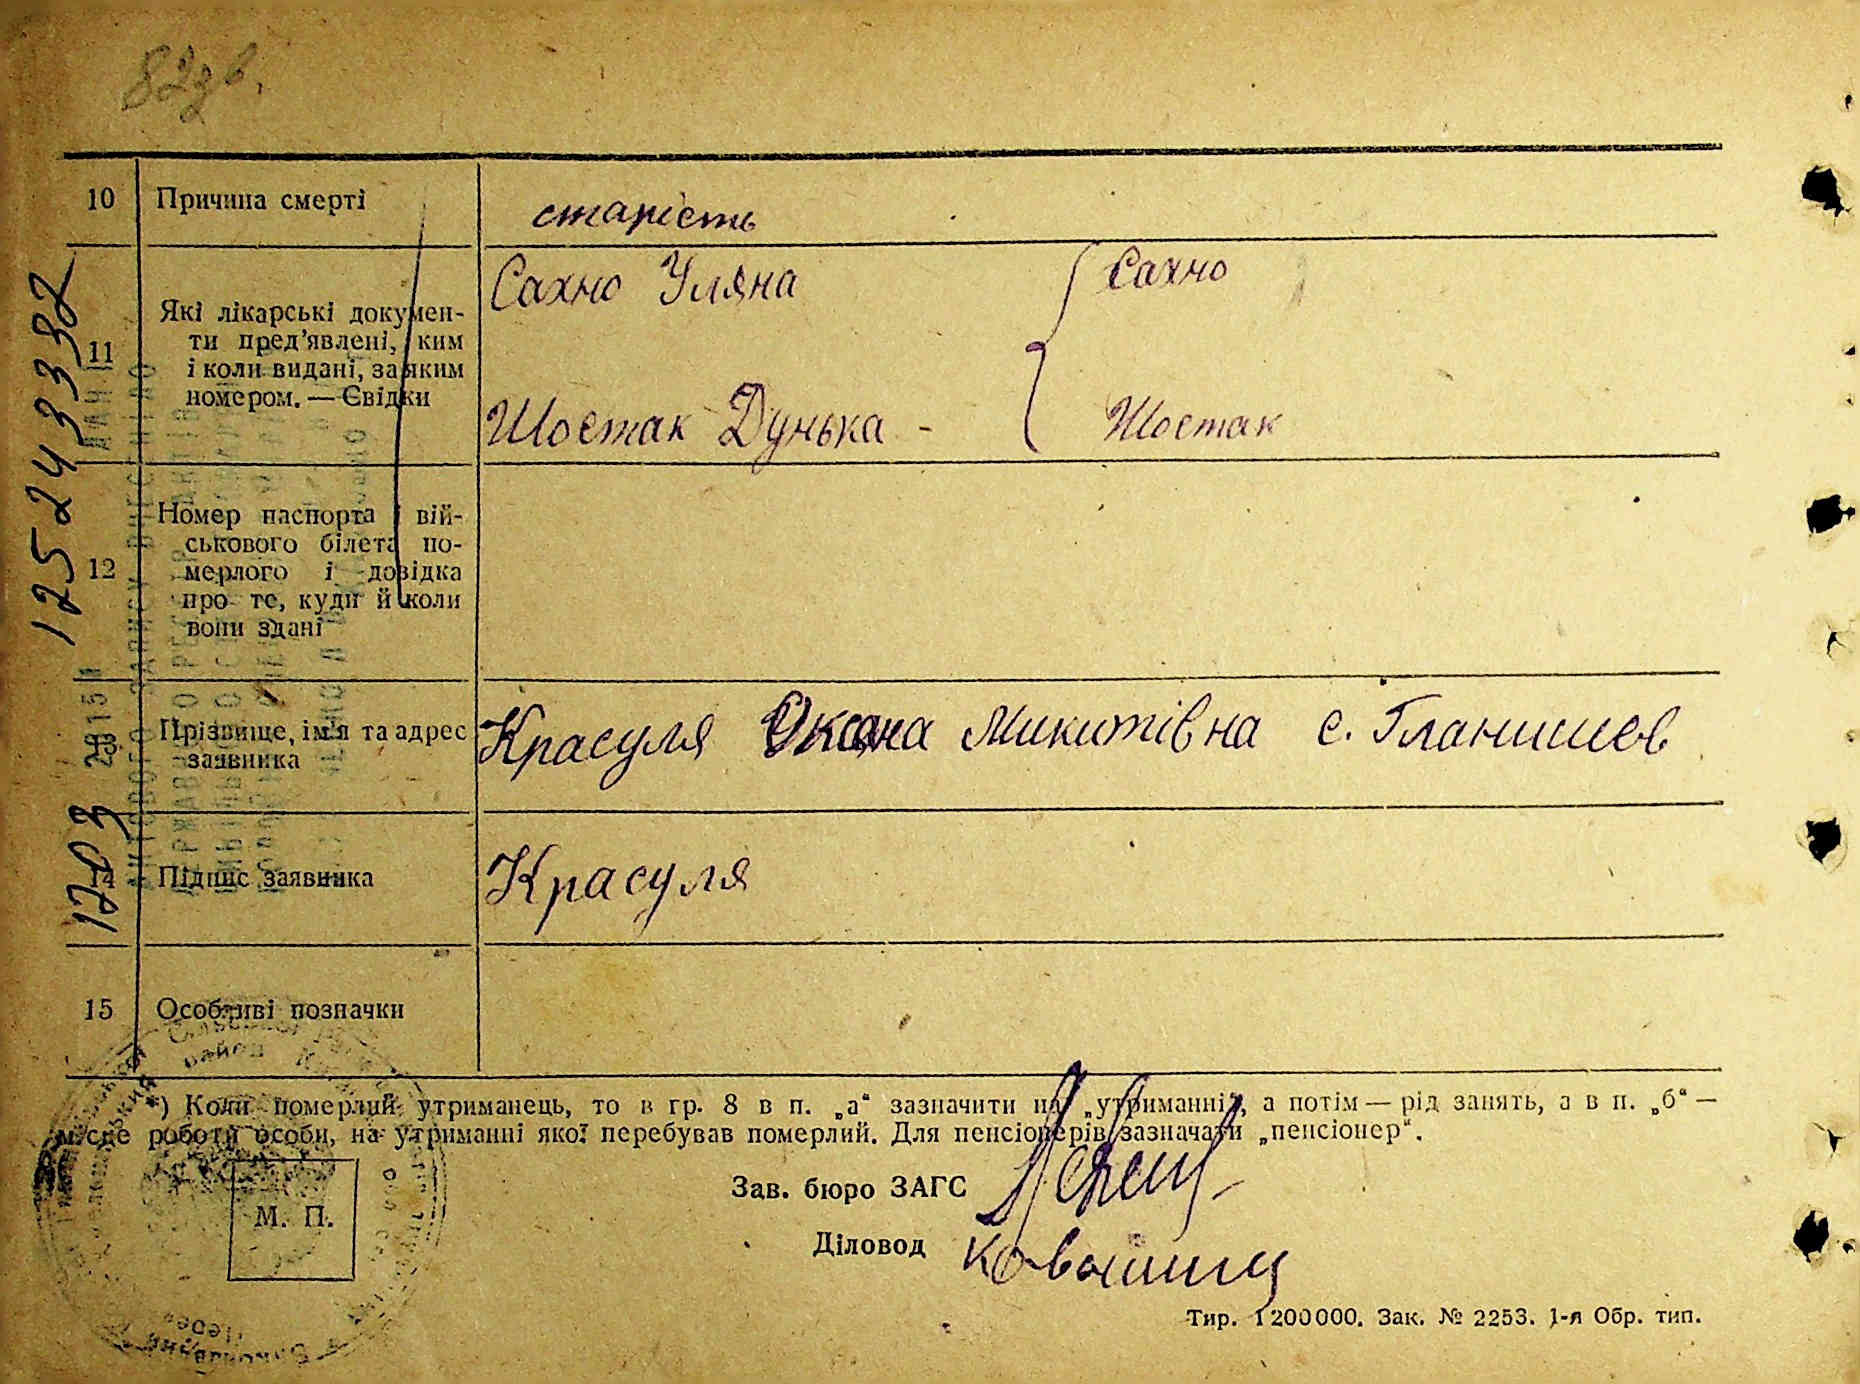 82зв.
10 Причина смерті старість
Сахно Уляна Сахно
Які лікарські докумен-
ти пред'явлені, ким
11
і коли видані, за яким
номером. — Свідки
Шостак Дунька - Шостак
Номер паспорта і вій-
ськового білета по-
12 мерлого і довідка
про те, куди й коли
вони здані
13 Прізвище, ім'я та адрес
заявника
Красуля Оксана Микитівна с. Гланишев
14 Підпис заявника Красуля
15 Особливі позначки
175243332
1703
*) Коли померлий утриманець, то в гр. 8 в п. „а“ зазначити на „утриманні“, а потім — рід занять, а в п. „б“ —
місце роботи особи, на утриманні якої перебував померлий. Для пенсіонерів зазначати „пенсіонер“.
Зав. бюро ЗАГС
М. П.
Діловод
Тир. 1200000. Зак. № 2253. 1-я Обр. тип.